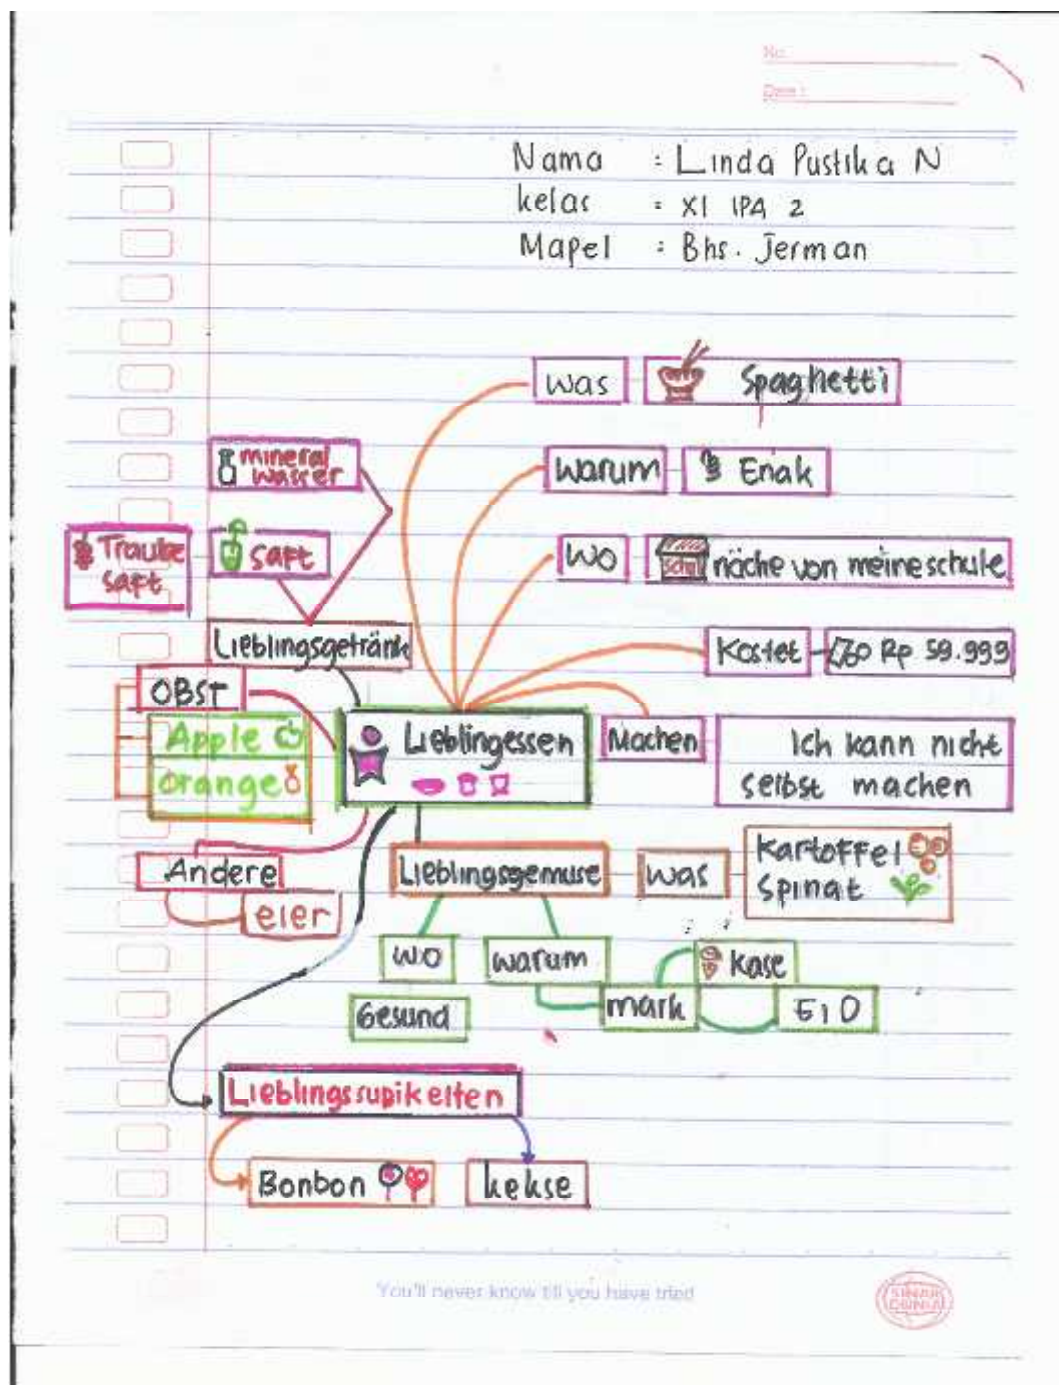 No.
Date :
Nama : Linda Pustika N
kelas : XI IPA 2
Mapel : Bhs. Jerman
was
Spaghetti
warum
Enak
wo
schul
näche von meine schule
Kostet
Rp 59.999
Machen
Ich kann nicht
selbst machen
mineral
wasser
saft
Traube
saft
Lieblingsgetränk
OBST
Apple
orange
Lieblingessen
Andere
eier
Lieblingsgemuse
was
Kartoffel
Spinat
wo
Gesund
warum
mark
Kase
Lieblingssupikeiten
Bonbon
kekse
You'll never know till you have tried
SINAR
DUNIA